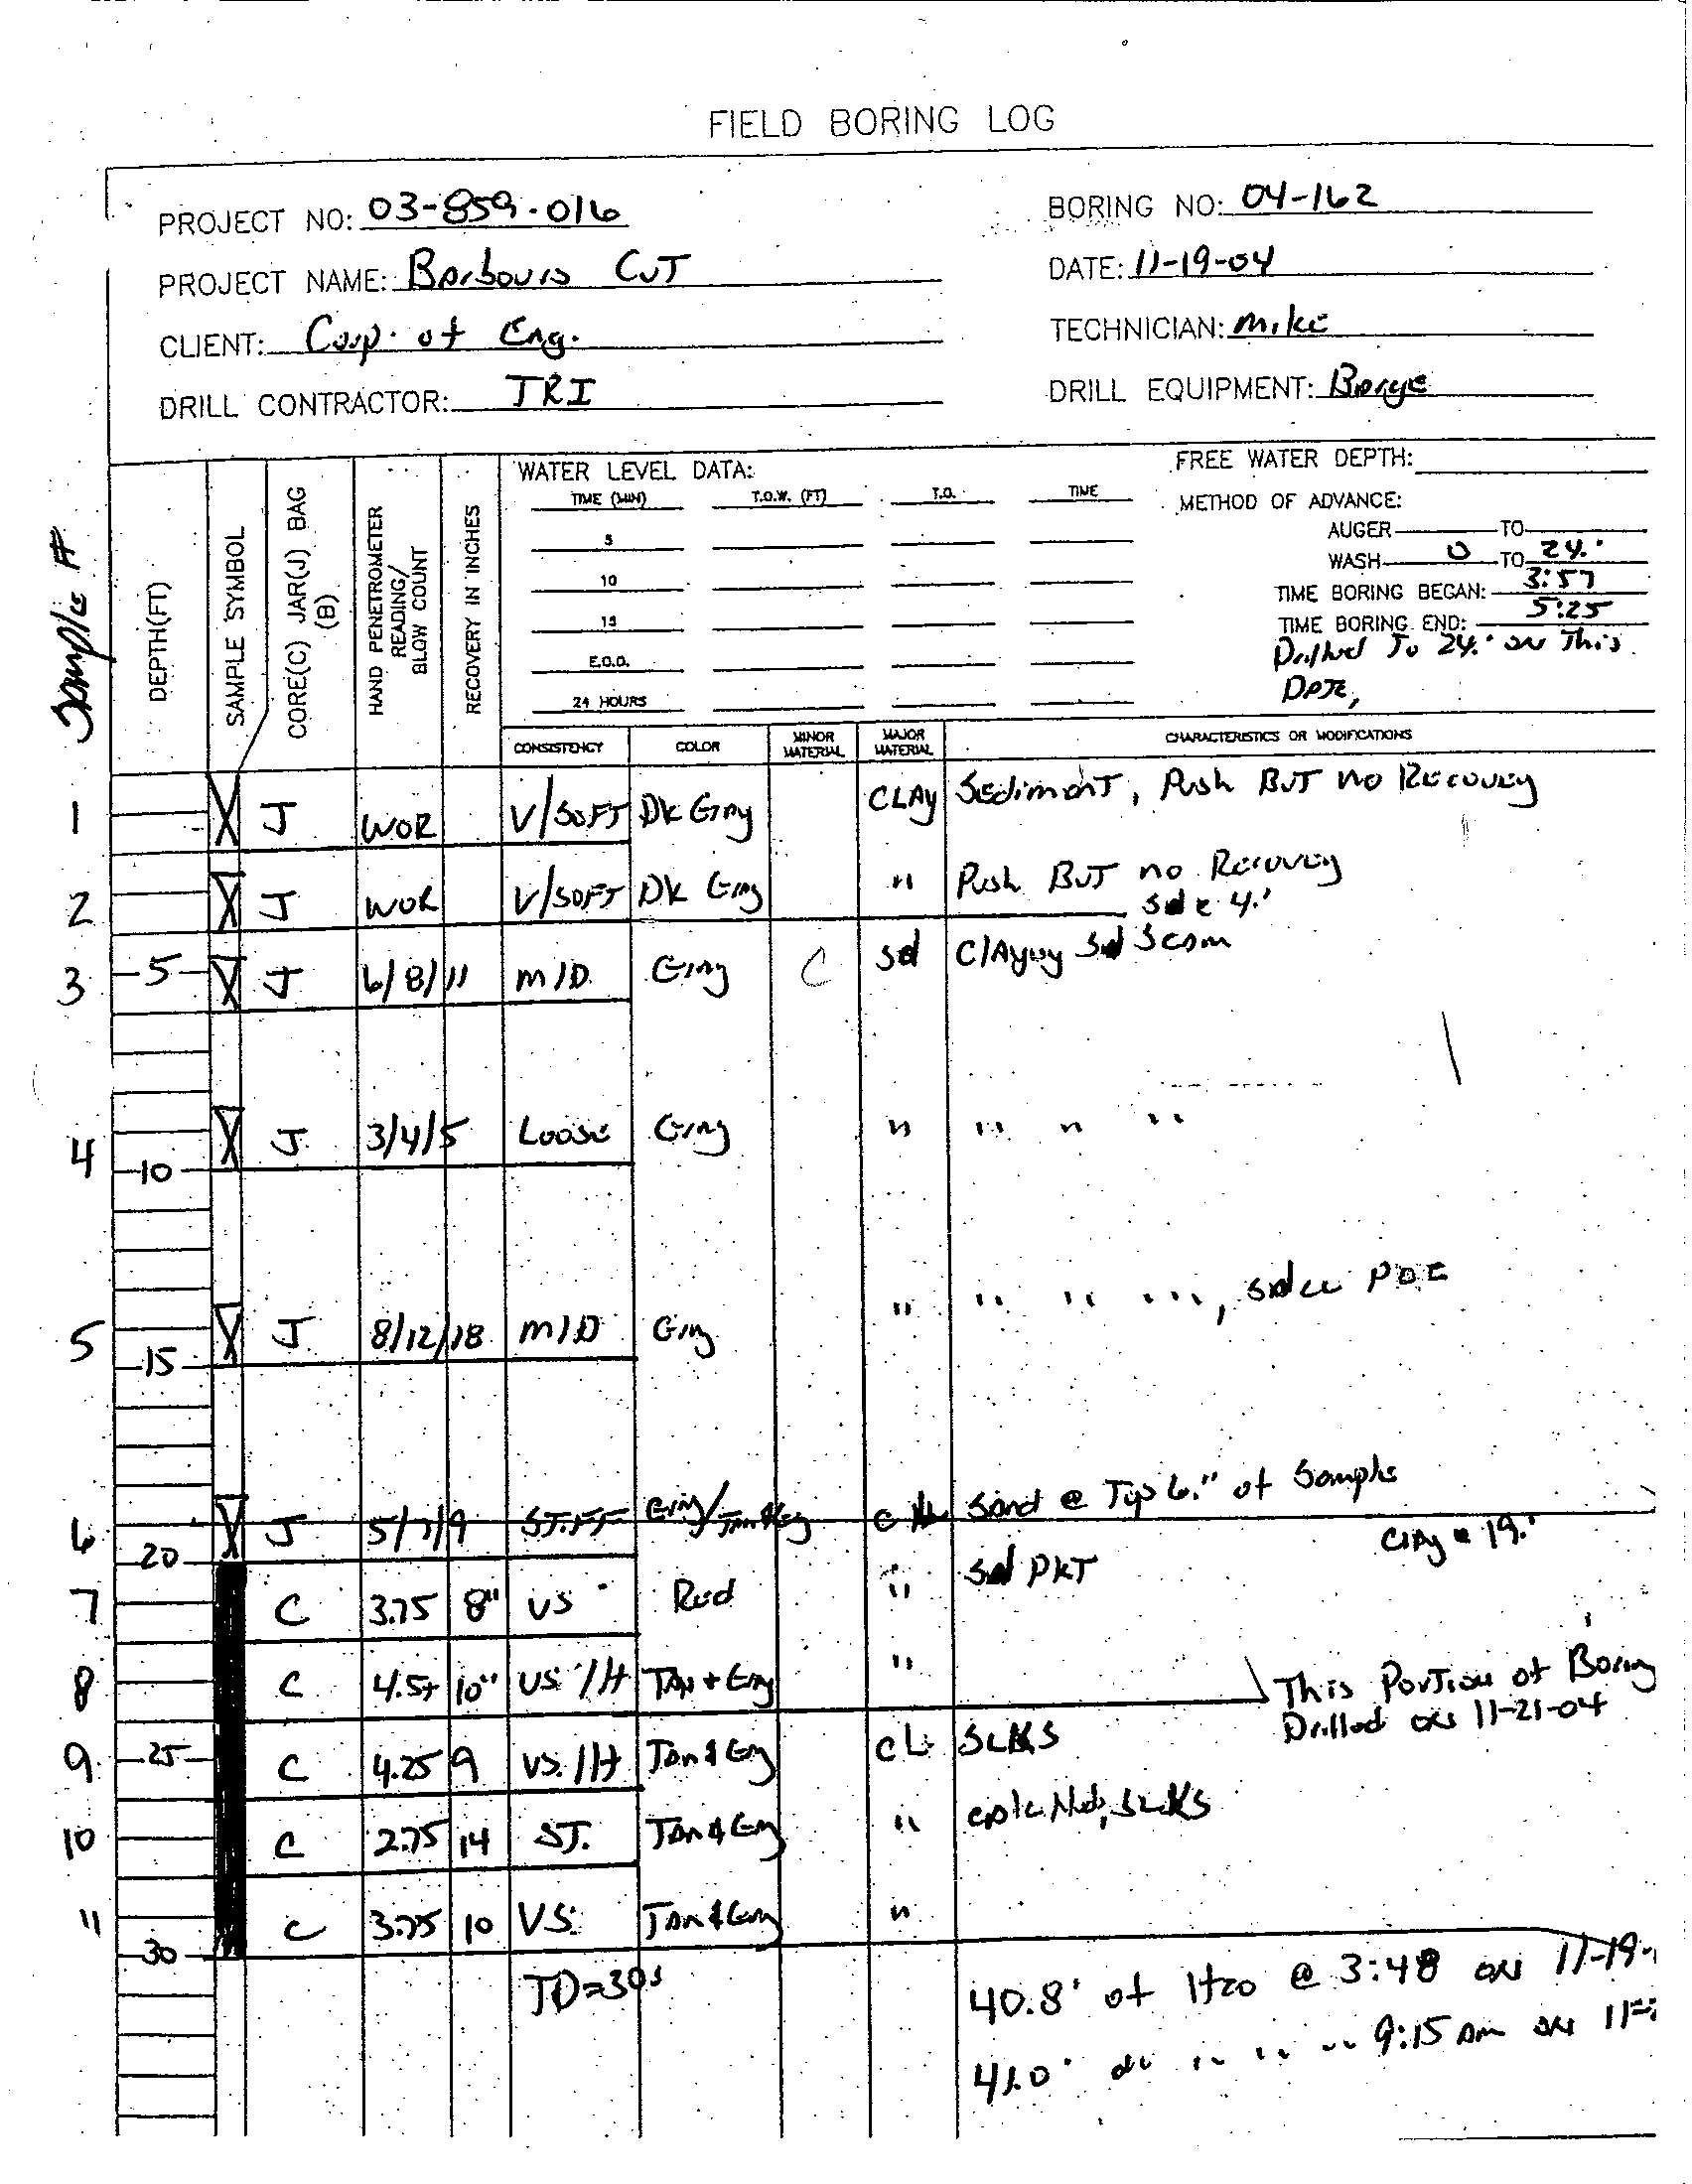 FIELD BORING LOG
PROJECT NO: 03-859-016
BORING NO: 04-162
PROJECT NAME: Barbours CuT
DATE: 11-19-04
CLIENT: Corp. of Eng.
TECHNICIAN: Mike
DRILL CONTRACTOR: TRI
DRILL EQUIPMENT: Barge
Sample #
DEPTH(FT)
SAMPLE SYMBOL
CORE(C) JAR(J) BAG (B)
HAND PENETROMETER READING/ BLOW COUNT
RECOVERY IN INCHES
WATER LEVEL DATA:
TIME (MIN) T.O.W. (FT) T.D. TIME
5
10
15
E.O.D.
24 HOURS
FREE WATER DEPTH:
METHOD OF ADVANCE:
AUGER TO
WASH 0 TO 24.'
TIME BORING BEGAN: 3:57
TIME BORING END: 5:25
Drilled To 24.' on This
Date,
CONSISTENCY COLOR MINOR MATERIAL MAJOR MATERIAL CHARACTERISTICS OR MODIFICATIONS
1 J WOR V/SOFT DK Gray CLAY Sediment, Push BuT no Recovery
2 J WOR V/SOFT DK Gray " Push BuT no Recovery
4.'
3 5 J 6/8/11 M/D Gray C sd Clayey sd Seam
4 10 J 3/4/5 Loose Gray " " " "
5 15 J 8/12/18 M/D Gray " " " "
6 20 J 5/7/9 STIFF Gray/Tan&Gy Sand @ Top 6." of Sample
Clay @ 19.'
7 C 3.75 8" VS Red " sd PKT
8 C 4.5+ 10" VS/H TAN + Gray "
This Portion of Boring
Drilled on 11-21-04
9 25 C 4.25 9 VS/H Tan & Gy CL SLKS
10 C 2.75 14 ST. Tan & Gry " SLKS
11 30 C 3.75 10 VS. Tan & Gry "
TD=30'
40.8' of H20 @ 3:48 on 11-19-
41.0' " " " 9:15 am on 11-